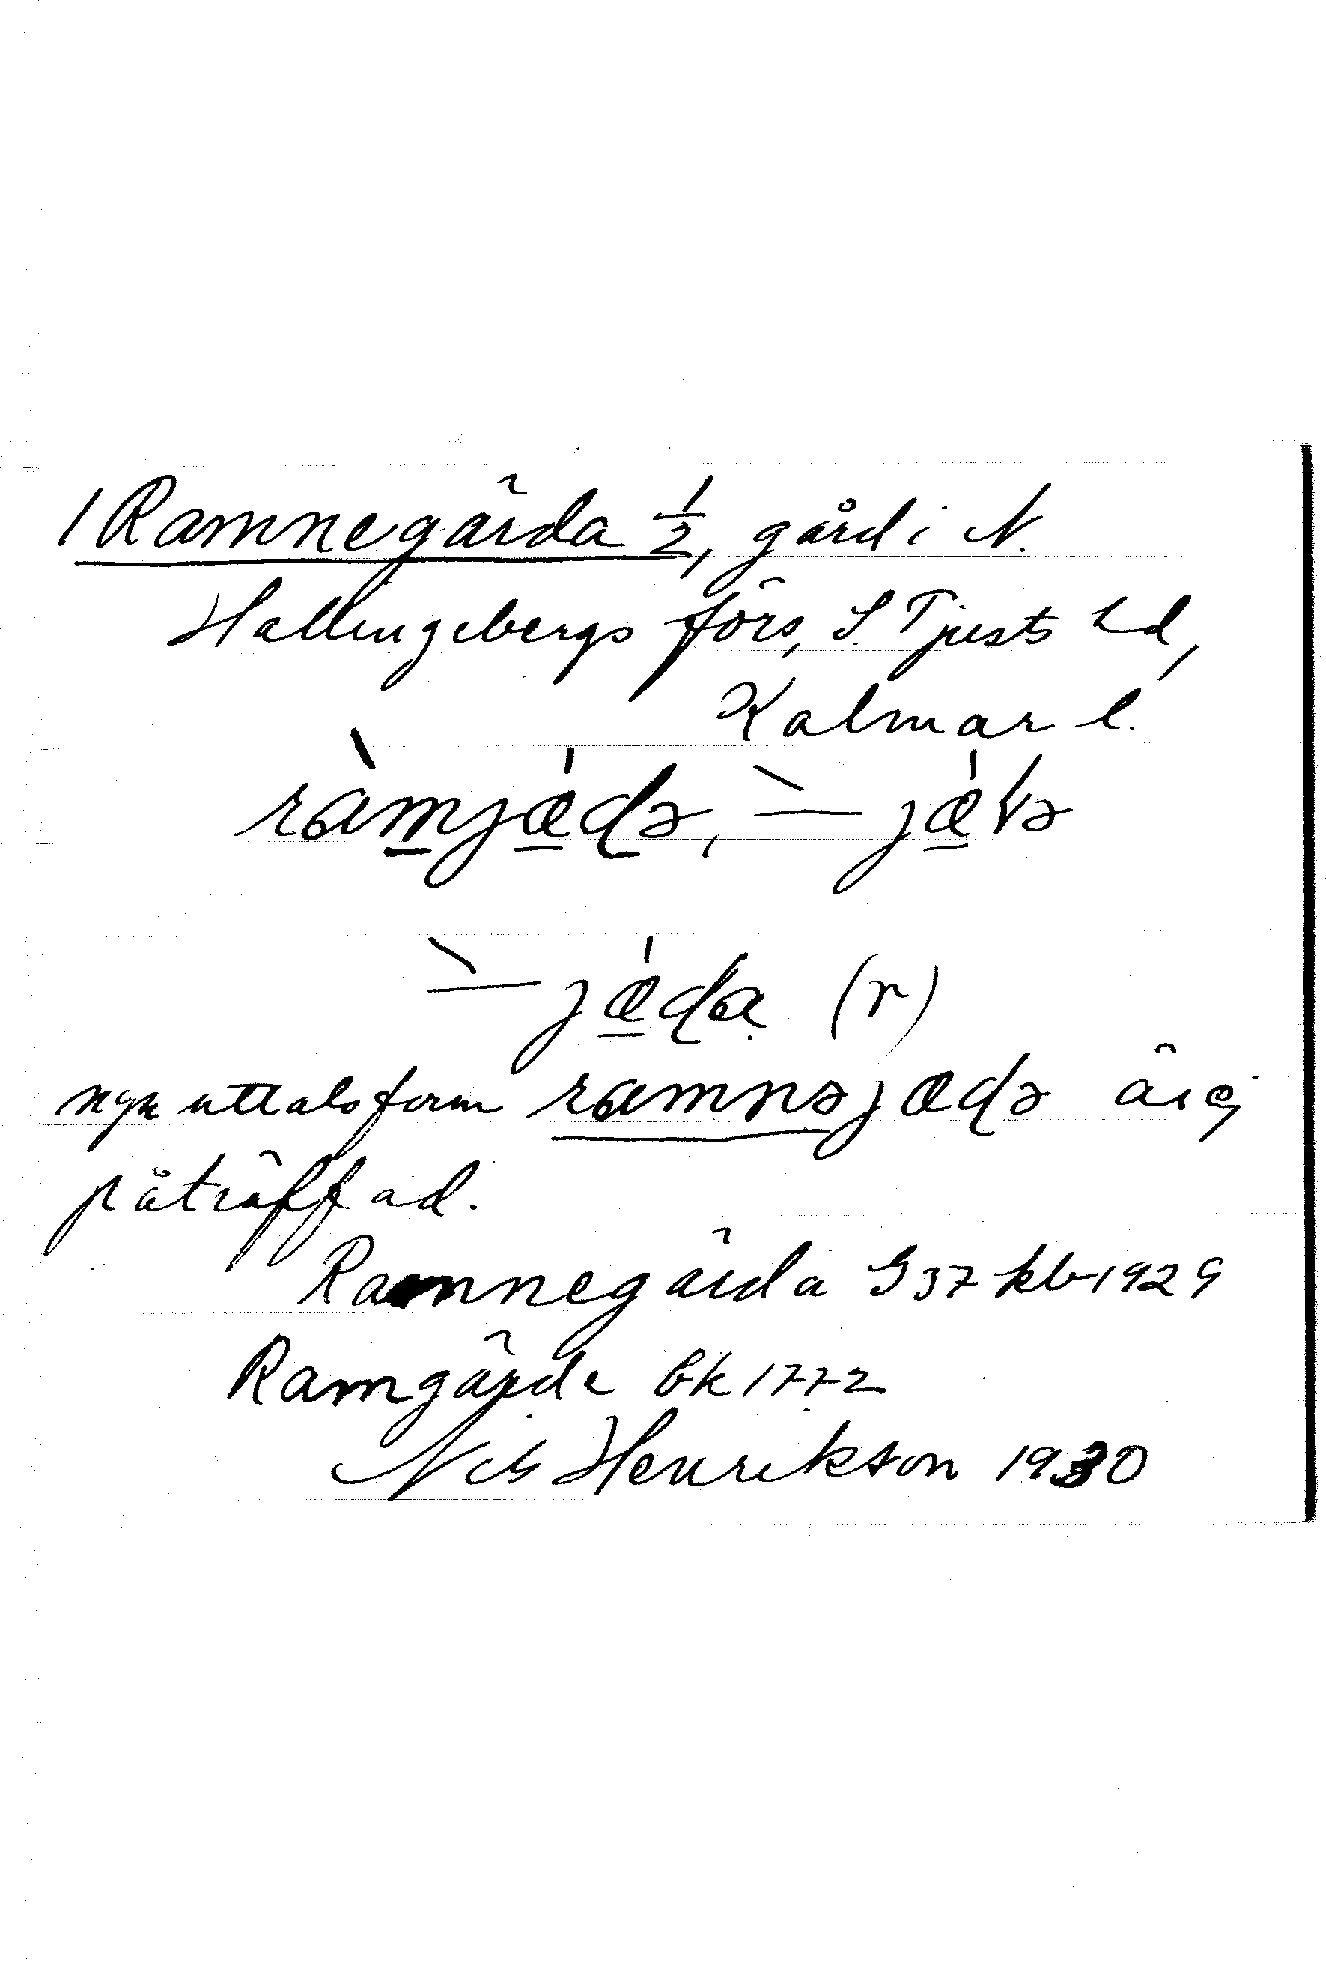 1 Ramnegärda 1/2, gård i N.
Hallingebergs förs, S. Tjusts hd,
Kalmar l.
ràmjǽdə, `— jǽ
`— jǽda (r)
ngn uttalsform ramnəjædə är ej
påträffad.
Ramnegärda G 37 kb 1929
Ramgärde bk 1772
Nils Henrikson 1930